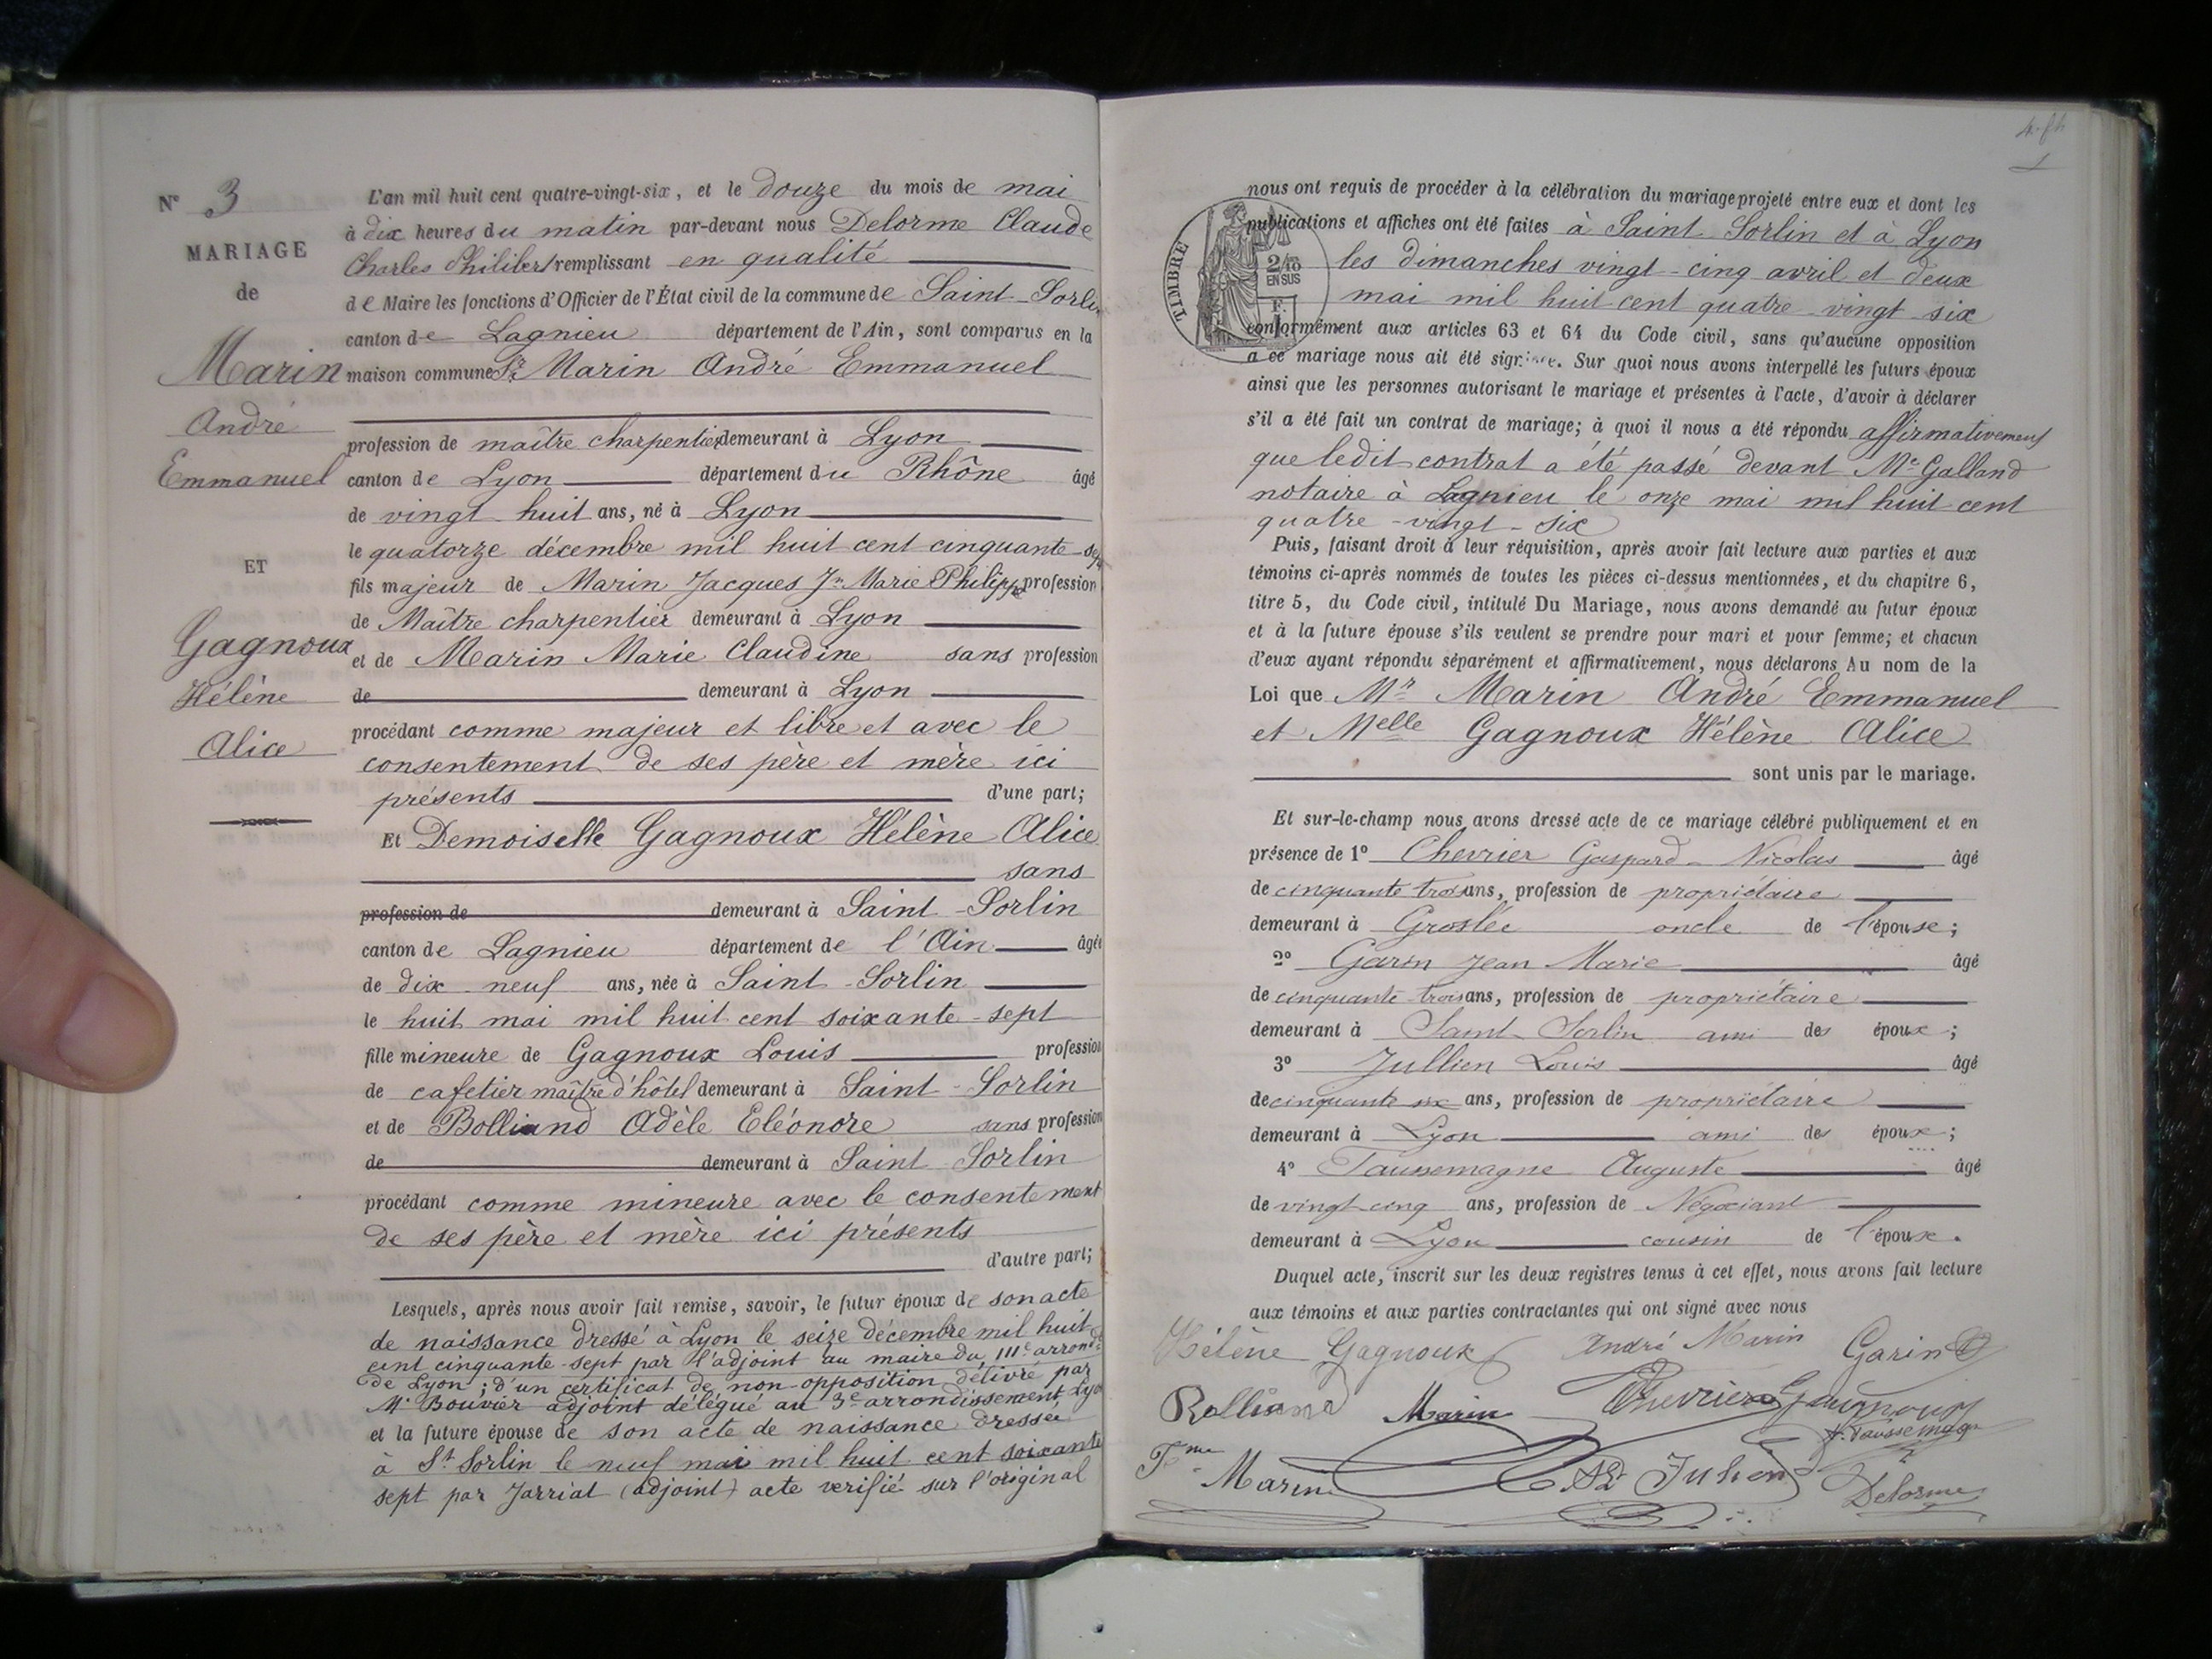 N° 3
MARIAGE
de
Marin
André
Emmanuel
ET
Gagnoux
Hélène
Alice
L'an mil huit cent quatre-vingt-six, et le douze du mois de mai
à dix heures du matin par-devant nous Delorme Claude
Charles Philibert remplissant en qualité
de Maire les fonctions d'Officier de l'État civil de la commune de Saint-Sorlin
canton de Lagnieu département de l'Ain, sont comparus en la
maison commune Sr Marin André Emmanuel
profession de maître charpentier demeurant à Lyon
canton de Lyon département du Rhône âgé
de vingt huit ans, né à Lyon
le quatorze décembre mil huit cent cinquante-sept
fils majeur de Marin Jacques Jn Marie Philippe profession
de Maître charpentier demeurant à Lyon
et de Marin Marie Claudine sans profession
de demeurant à Lyon
procédant comme majeur et libre et avec le
consentement de ses père et mère ici
présents d'une part;
Et Demoiselle Gagnoux Hélène Alice
sans
profession de demeurant à Saint-Sorlin
canton de Lagnieu département de l'Ain âgée
de dix-neuf ans, née à Saint-Sorlin
le huit mai mil huit cent soixante-sept
fille mineure de Gagnoux Louis profession
de cafetier maître d'hôtel demeurant à Saint-Sorlin
et de Bolliand Adèle Eléonore sans profession
de demeurant à Saint-Sorlin
procédant comme mineure avec le consentement
de ses père et mère ici présents
d'autre part;
Lesquels, après nous avoir fait remise, savoir, le futur époux de son acte
de naissance dressé à Lyon le seize décembre mil huit
cent cinquante-sept par l'adjoint au maire du IIIe arrondt
de Lyon; d'un certificat de non-opposition délivré par
Mr Bouvier adjoint délégué au 3e arrondissement Lyon
et la future épouse de son acte de naissance dressé
à St Sorlin le neuf mai mil huit cent soixante
sept par Jarriat (adjoint) acte verifié sur l'original
nous ont requis de procéder à la célébration du mariage projeté entre eux et dont les
publications et affiches ont été faites à Saint Sorlin et à Lyon
les dimanches vingt-cinq avril et deux
mai mil huit cent quatre-vingt-six
TIMBRE
2/10
EN SUS
F.
1
conformément aux articles 63 et 64 du Code civil, sans qu'aucune opposition
à ce mariage nous ait été signifiée. Sur quoi nous avons interpellé les futurs époux
ainsi que les personnes autorisant le mariage et présentes à l'acte, d'avoir à déclarer
s'il a été fait un contrat de mariage; à quoi il nous a été répondu affirmativement
que ledit contrat a été passé devant Me Galland
notaire à Lagnieu le onze mai mil huit cent
quatre-vingt-six
Puis, faisant droit à leur réquisition, après avoir fait lecture aux parties et aux
témoins ci-après nommés de toutes les pièces ci-dessus mentionnées, et du chapitre 6,
titre 5, du Code civil, intitulé Du Mariage, nous avons demandé au futur époux
et à la future épouse s'ils veulent se prendre pour mari et pour femme; et chacun
d'eux ayant répondu séparément et affirmativement, nous déclarons Au nom de la
Loi que Mr Marin André Emmanuel
et Melle Gagnoux Hélène Alice
sont unis par le mariage.
Et sur-le-champ nous avons dressé acte de ce mariage célébré publiquement et en
présence de 1° Chevrier Gaspard-Nicolas âgé
de cinquante trois ans, profession de propriétaire
demeurant à Groslée oncle de l'épouse;
2° Garin Jean Marie âgé
de cinquante-trois ans, profession de propriétaire
demeurant à Saint-Sorlin ami des époux;
3° Jullien Louis âgé
de cinquante six ans, profession de propriétaire
demeurant à Lyon ami des époux;
4° Taussemagne Auguste âgé
de vingt-cinq ans, profession de Négociant
demeurant à Lyon cousin de l'épouse.
Duquel acte, inscrit sur les deux registres tenus à cet effet, nous avons fait lecture
aux témoins et aux parties contractantes qui ont signé avec nous
Hélène Gagnoux André Marin Garin
Bolliand Marin Chevrier Gagnoux
Marin Delorme